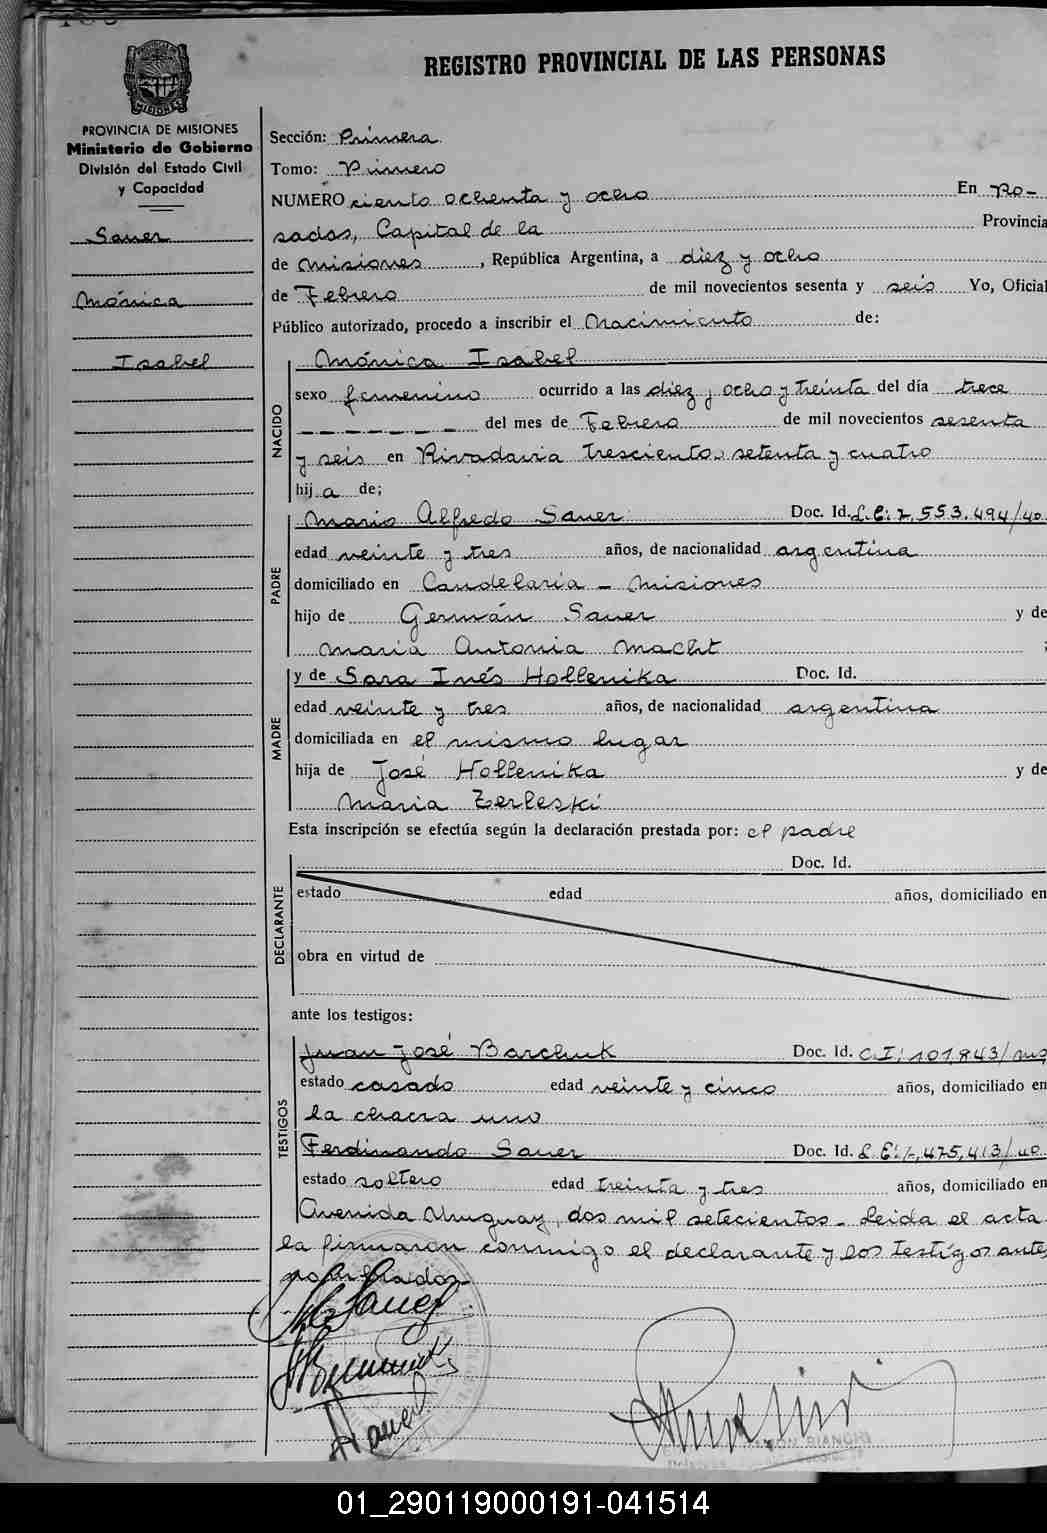 REGISTRO PROVINCIAL DE LAS PERSONAS
PROVINCIA DE MISIONES
Ministerio de Gobierno
División del Estado Civil
y Capacidad
Sauer
Mónica
Isabel
Sección: Primera
Tomo: Primero
NUMERO ciento ochenta y ocho En Po-
sadas, Capital de la Provincia
de Misiones, República Argentina, a diez y ocho
de Febrero de mil novecientos sesenta y seis Yo, Oficial
Público autorizado, procedo a inscribir el Nacimiento de:
NACIDO
Mónica Isabel
sexo femenino ocurrido a las diez y ocho y treinta del día trece
del mes de Febrero de mil novecientos sesenta
y seis en Rivadavia trescientos setenta y cuatro
hija de;
PADRE
Mario Alfredo Sauer Doc. Id. L.E: 7,553.494/40.
edad veinte y tres años, de nacionalidad argentina
domiciliado en Candelaria - Misiones
hijo de Germán Sauer y de
María Antonia Macht
MADRE
y de Sara Inés Hollenika Doc. Id.
edad veinte y tres años, de nacionalidad argentina
domiciliada en el mismo lugar
hija de José Hollenika y de
María Zerleski
Esta inscripción se efectúa según la declaración prestada por: el padre
DECLARANTE
Doc. Id.
estado edad años, domiciliado en
obra en virtud de
ante los testigos:
TESTIGOS
Juan José Barchuk Doc. Id. C.I: 101,843/
estado casado edad veinte y cinco años, domiciliado en
la chacra uno
Ferdinando Sauer Doc. Id. L.E: 475,413/40.
estado soltero edad treinta y tres años, domiciliado en
Avenida Uruguay, dos mil setecientos. Leida el acta
la firmaron conmigo el declarante y los testigos ante
Sauer
Sauer
01_290119000191-041514